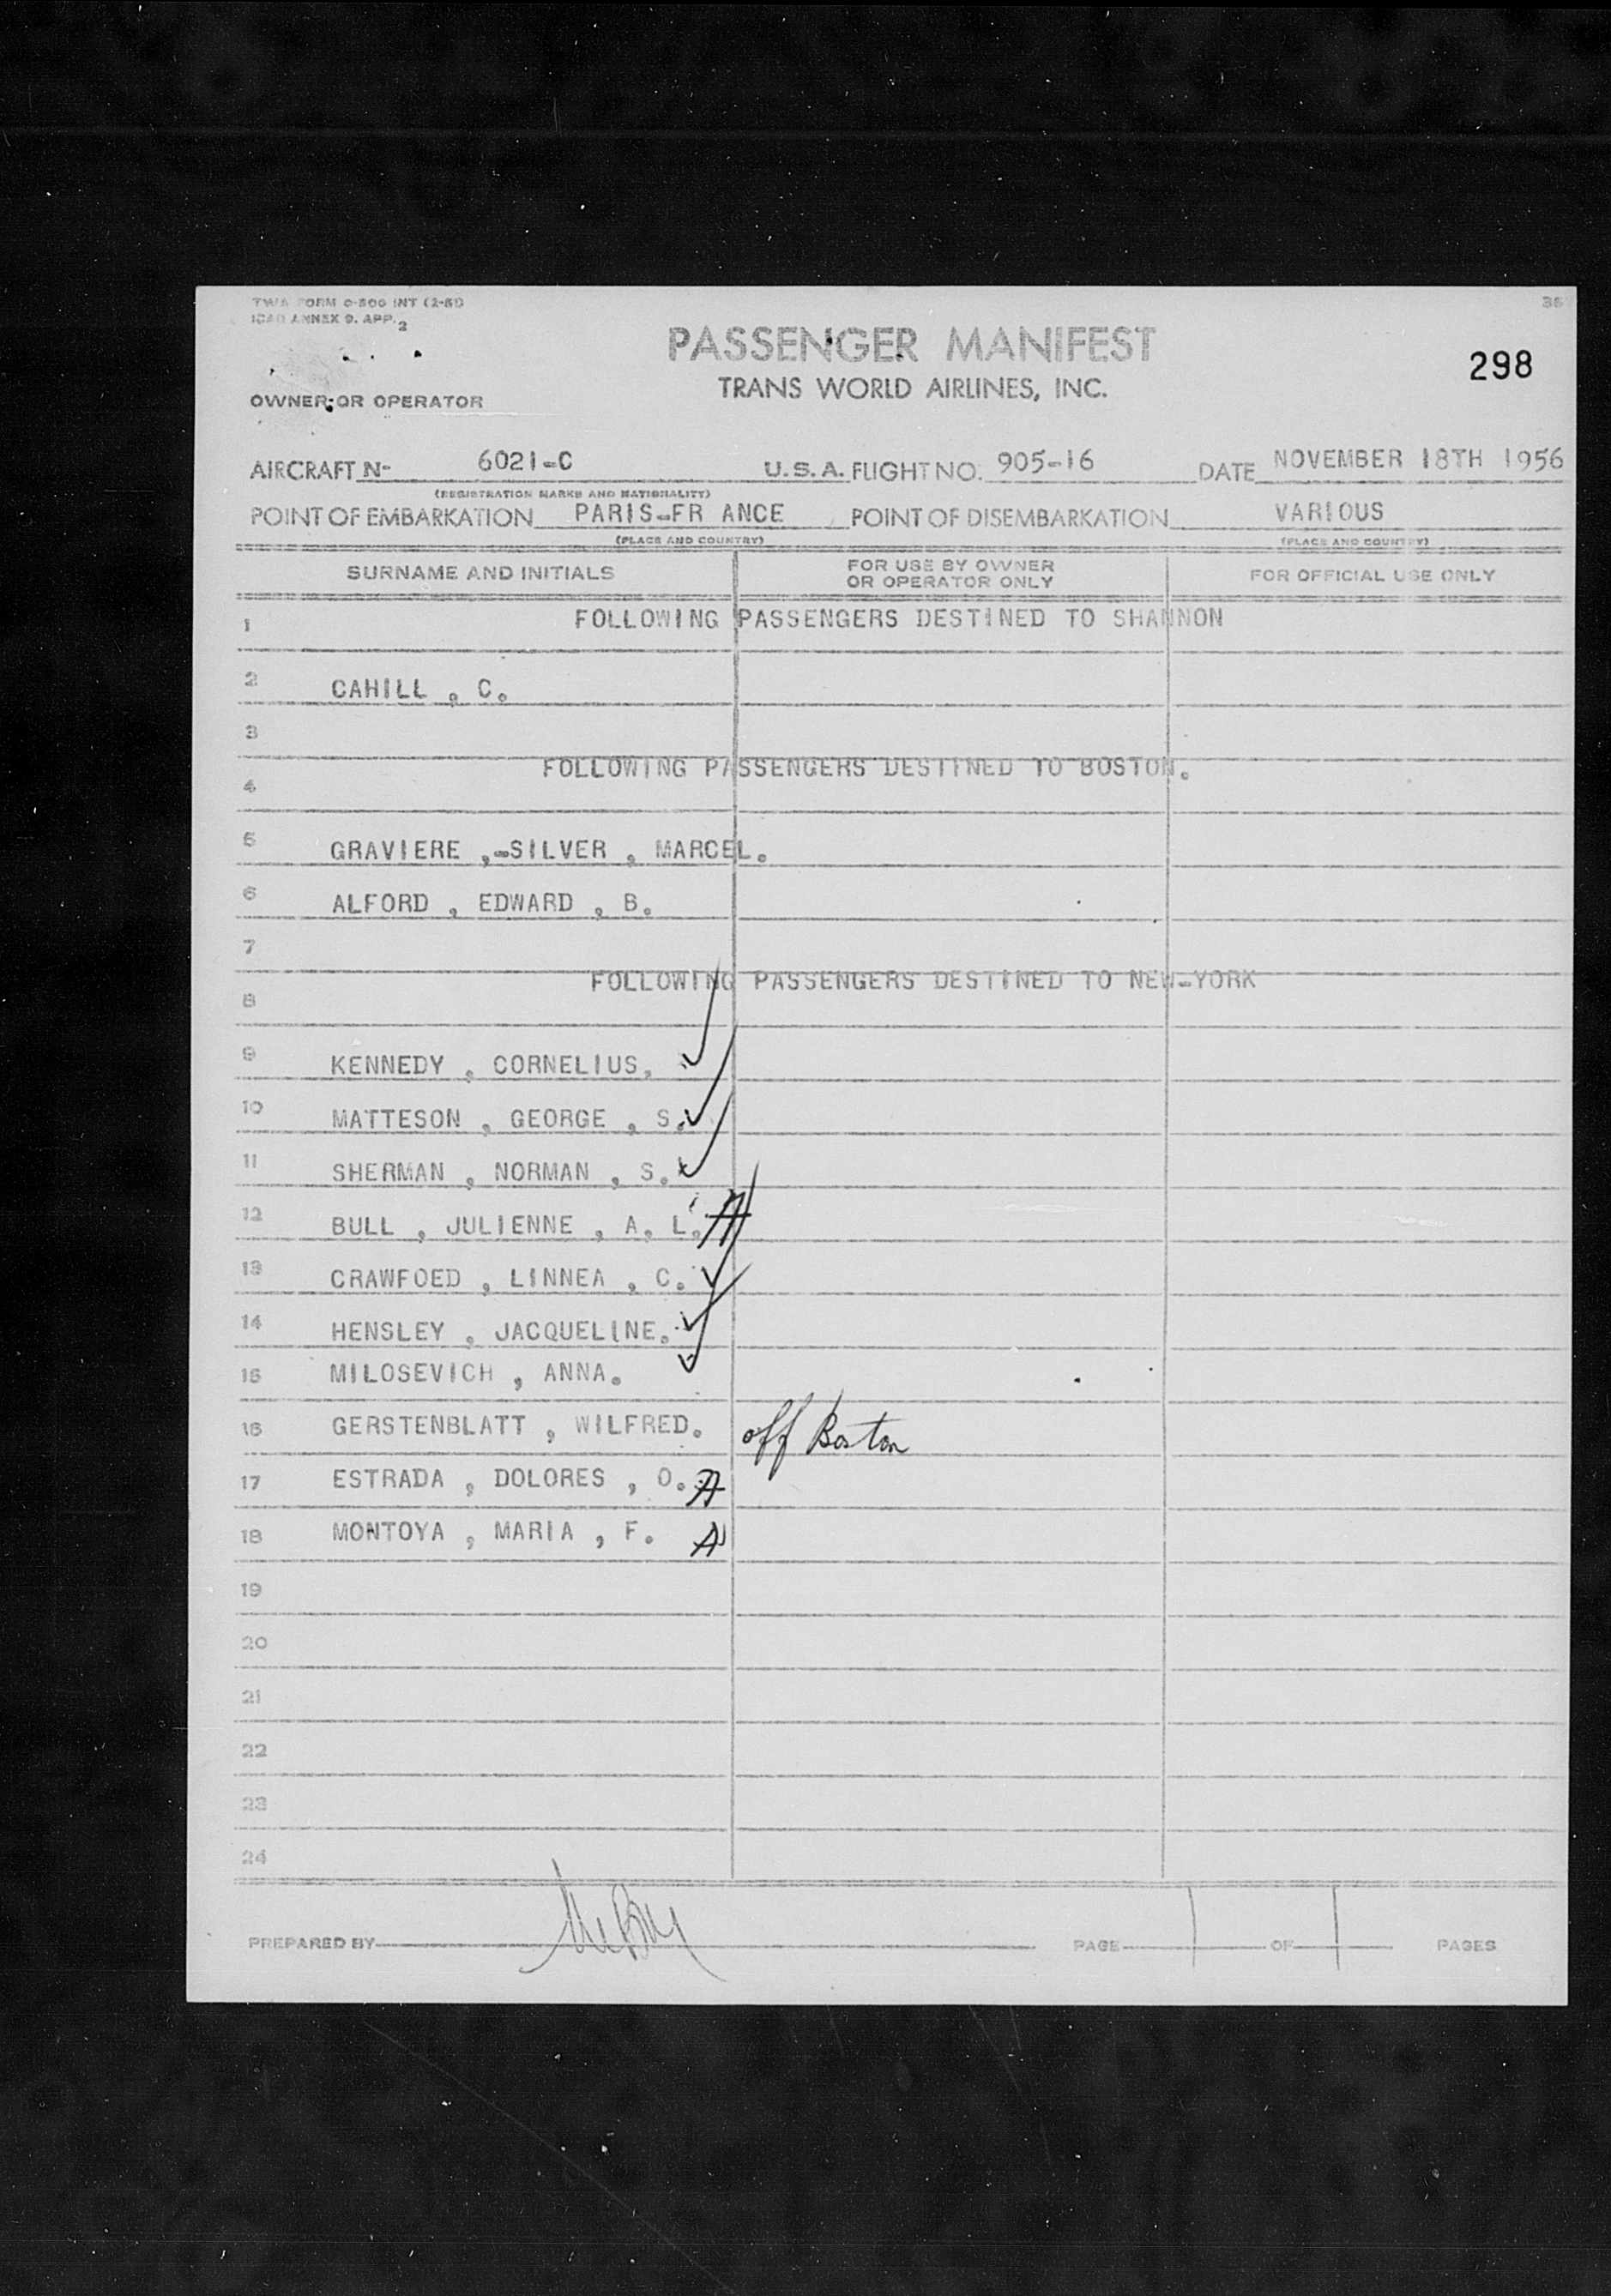 TWA FORM O-500 INT (2-51)
36
ICAO ANNEX 9. APP. 2
PASSENGER MANIFEST
298
TRANS WORLD AIRLINES, INC.
OWNER OR OPERATOR
AIRCRAFT N- 6021-C U.S.A. FLIGHT NO. 905-16 DATE NOVEMBER 18TH 1956
(REGISTRATION MARKS AND NATIONALITY)
POINT OF EMBARKATION PARIS-FR ANCE POINT OF DISEMBARKATION VARIOUS
(PLACE AND COUNTRY) (PLACE AND COUNTRY)
SURNAME AND INITIALS FOR USE BY OWNER OR OPERATOR ONLY FOR OFFICIAL USE ONLY
1 FOLLOWING PASSENGERS DESTINED TO SHANNON
2 CAHILL , C.
3
FOLLOWING PASSENGERS DESTINED TO BOSTON.
4
5 GRAVIERE ,-SILVER , MARCEL.
6 ALFORD , EDWARD , B.
7
FOLLOWING PASSENGERS DESTINED TO NEW-YORK
8
9 KENNEDY , CORNELIUS, ✓
10 MATTESON , GEORGE , S. ✓
11 SHERMAN , NORMAN , S. ✓
12 BULL , JULIENNE , A, L. A
13 CRAWFOED , LINNEA , C. ✓
14 HENSLEY , JACQUELINE. ✓
15 MILOSEVICH , ANNA. ✓
16 GERSTENBLATT , WILFRED. off Boston
17 ESTRADA , DOLORES , O. A
18 MONTOYA , MARIA , F. A
19
20
21
22
23
24
PREPARED BY PAGE 1 OF 1 PAGES